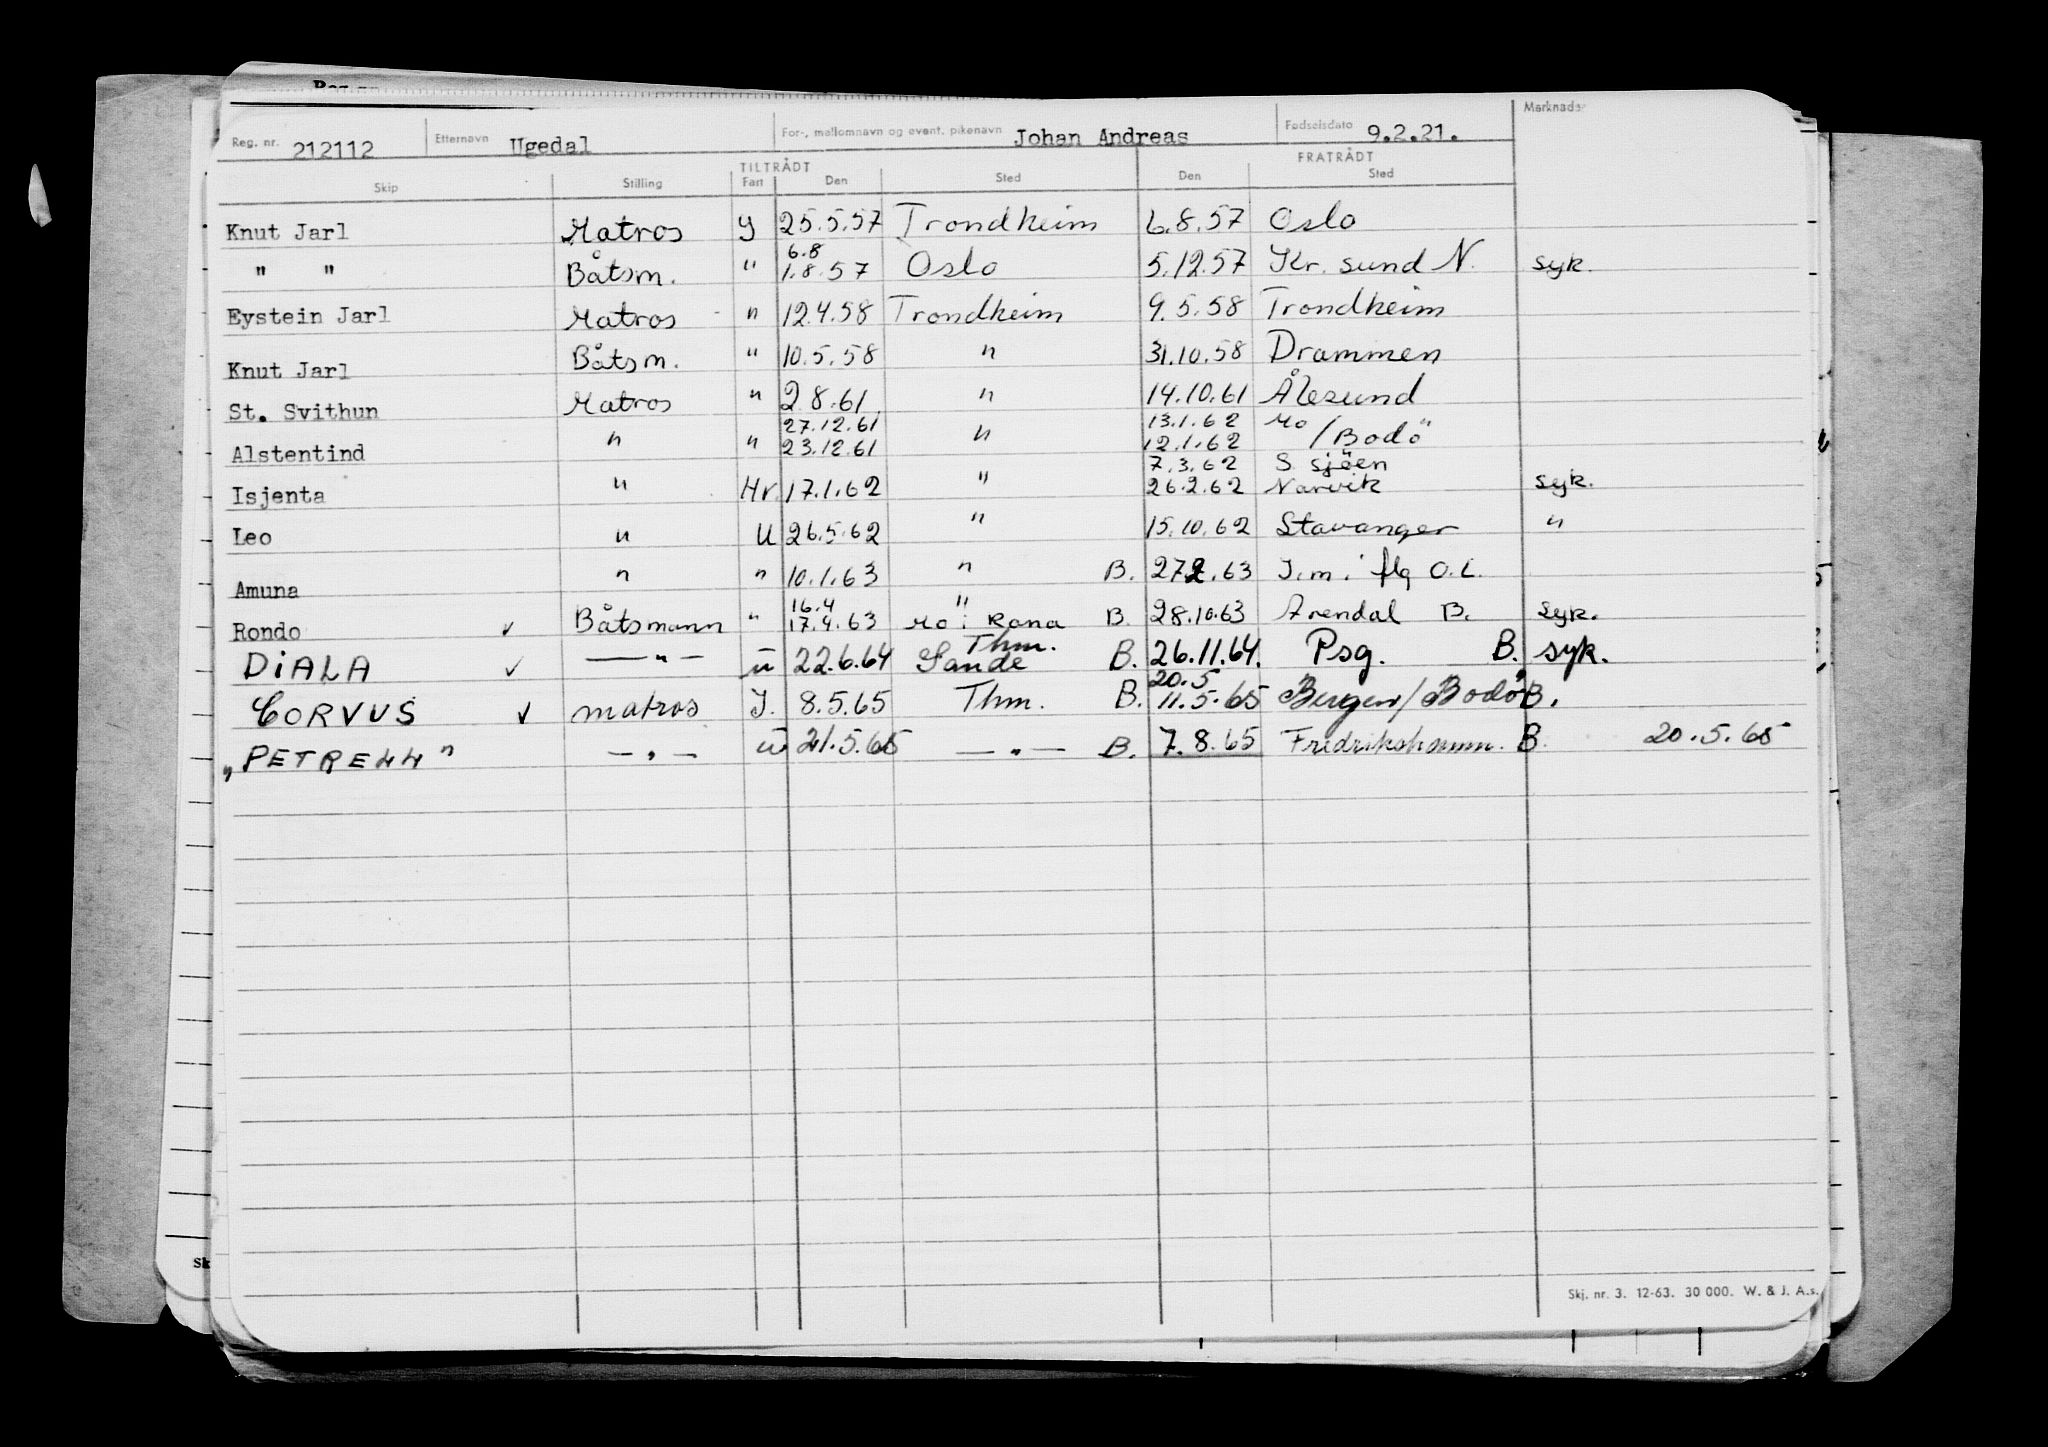 Reg. nr. 212112 Etternavn Ugedal For-, mellomnavn og event. pikenavn Johan Andreas Fødselsdato 9.2.21. Merknader
TILTRÅDT FRATRÅDT
Skip Stilling Fart Den Sted Den Sted
Knut Jarl Matros J 25.5.57 Trondheim 6.8.57 Oslo
6.8
" " Båtsm. " 1.8.57 Oslo 5.12.57 Kr. sund N. syk.
Eystein Jarl Matros - " 12.4.58 Trondheim 9.5.58 Trondheim
Knut Jarl Båtsm. " 10.5.58 " 31.10.58 Drammen
St. Svithun Matros " 2.8.61 " 14.10.61 Ålesund
27.12.61 13.1.62 Mo
Alstentind " " 23.12.61 " 12.1.62 /Bodö
7.3.62 S. sjöen
Isjenta " Hv 17.1.62 " 26.2.62 Narvik syk.
Leo " U 26.5.62 " 15.10.62 Stavanger "
Amuna " " 10.1.63 " B. 27.2.63 J.m. i flg O.L.
16.4 "
Rondo ✓ Båtsmann " 17.4.63 Mo i Rana B. 28.10.63 Arendal B. syk.
Thm.
DiALA ✓ — " — ü 22.6.64 Sande B. 26.11.64. Psg. B. syk.
20.5
CORVUS ✓ matros J. 8.5.65 Thm. B. 11.5.65 Bergen/Bodö B.
„PETRELL" — " — ü 21.5.65 — " — B. 7.8.65 Fredrikshavn. B. 20.5.65
Sk
Skj. nr. 3. 12-63. 30 000. W. & J. A.s.